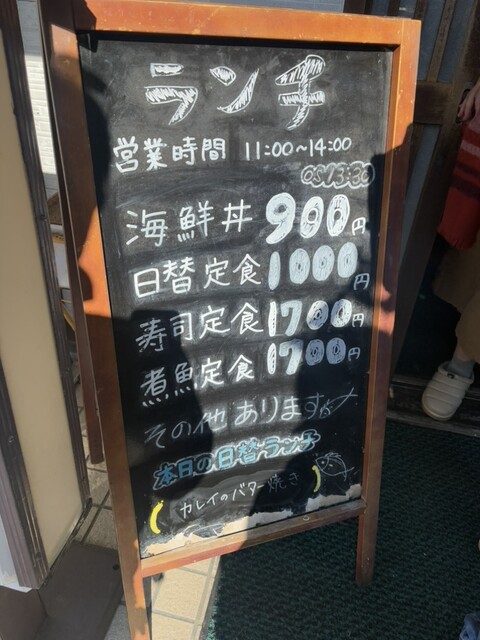 ランチ
営業時間 11:00~14:00
OS13:30
海鮮丼 900円
日替定食 1000円
寿司定食 1700円
煮魚定食 1700円
その他あります
本日の日替ランチ
(カレイのバター焼き)